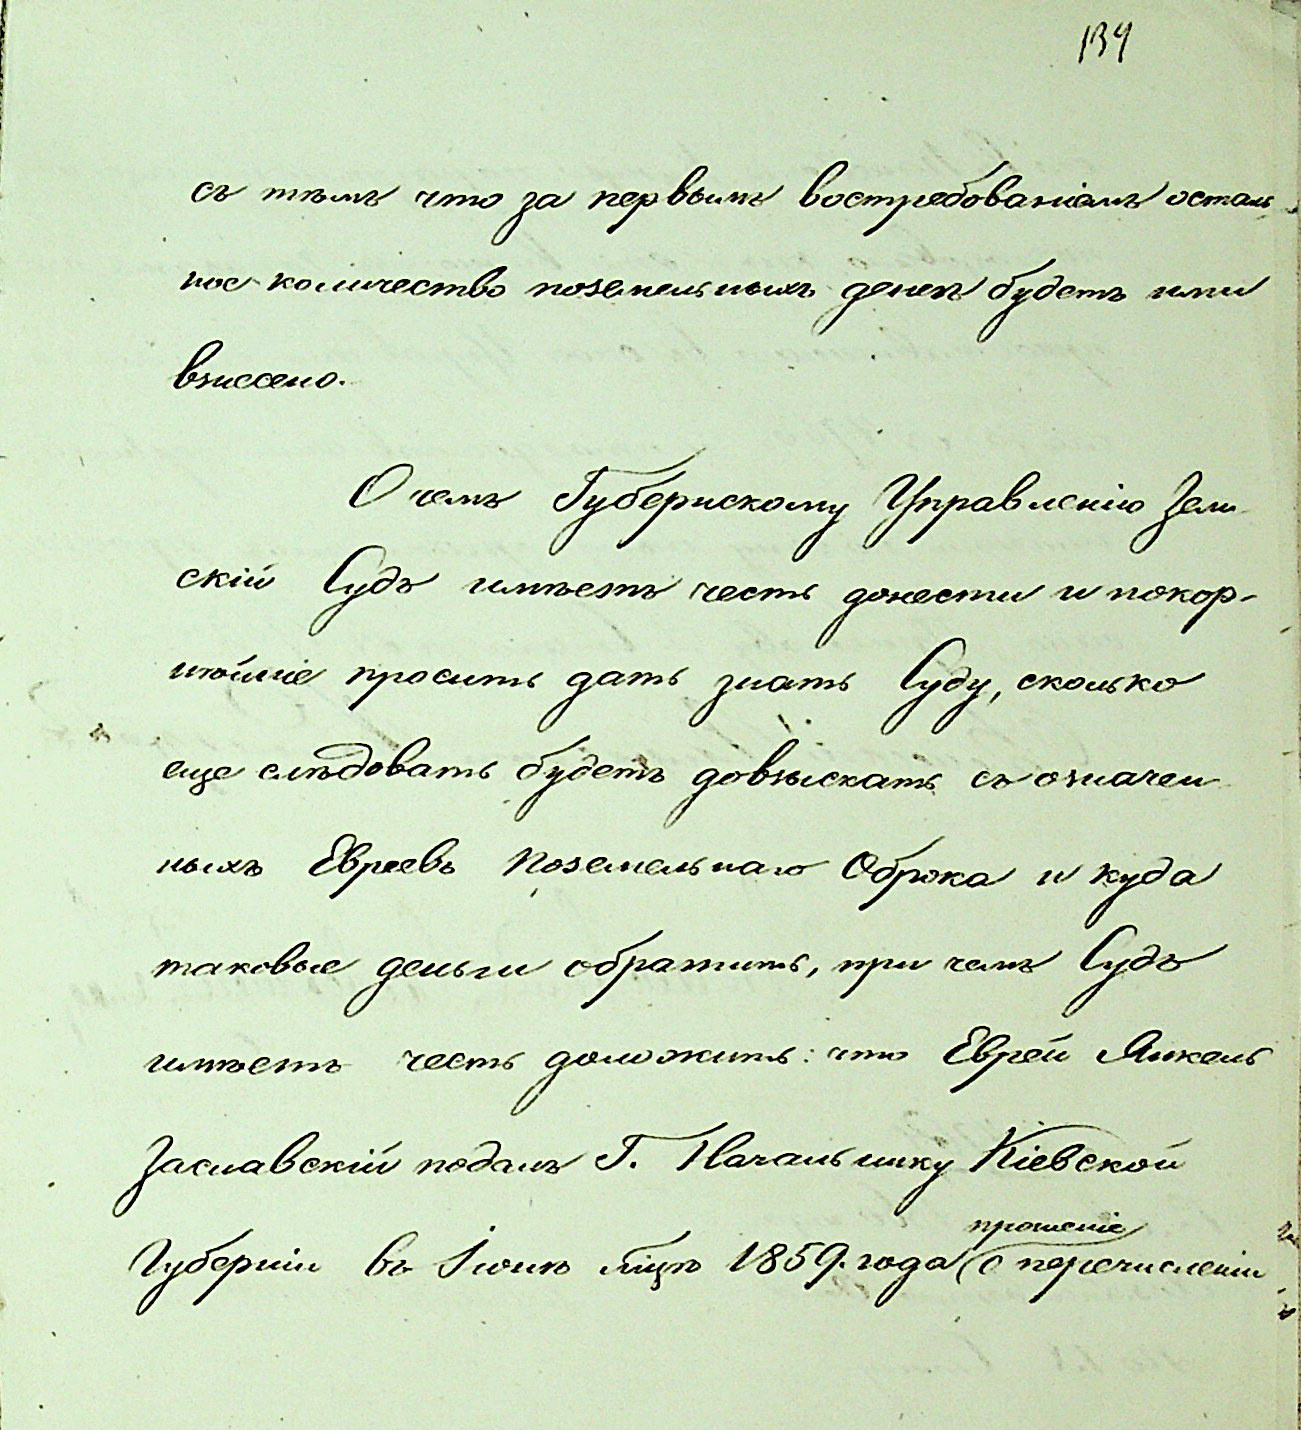 134
съ тѣмъ что за первымъ востребованіемъ осталь
ное количество поземельныхъ денегъ будетъ ими
взнесено.
О чемъ Губернскому Управленію Зем
скій Судъ имѣетъ честь донести и покор-
нѣйше просить дать знать Суду, сколько
еще слѣдовать будетъ довзыскать съ означен
ныхъ Евреевъ Поземельнаго Оброка и куда
таковые деньги обратить, при чемъ Судъ
имѣетъ честь доложить: что Еврей Янкель
Заславскій подалъ Г. Начальнику Кіевской
прошеніе
Губерніи въ Іюнѣ мцѣ 1859. года (о перечисленіи